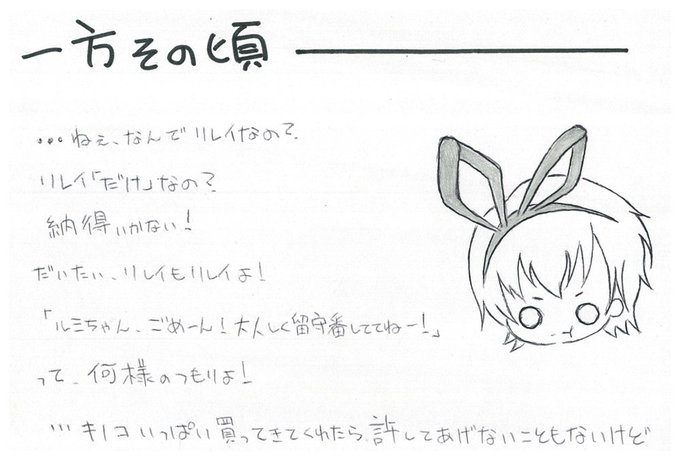 一方その頃 ―――――
…ねぇ、なんでリレイなの?
リレイ「だけ」なの?
納得いかない!
だいたい、リレイもリレイよ!
「ルミちゃん、ごめーん!大人しく留守番しててねー!」
って、何様のつもりよ!
…キノコいっぱい買ってきてくれたら許してあげないこともないけど